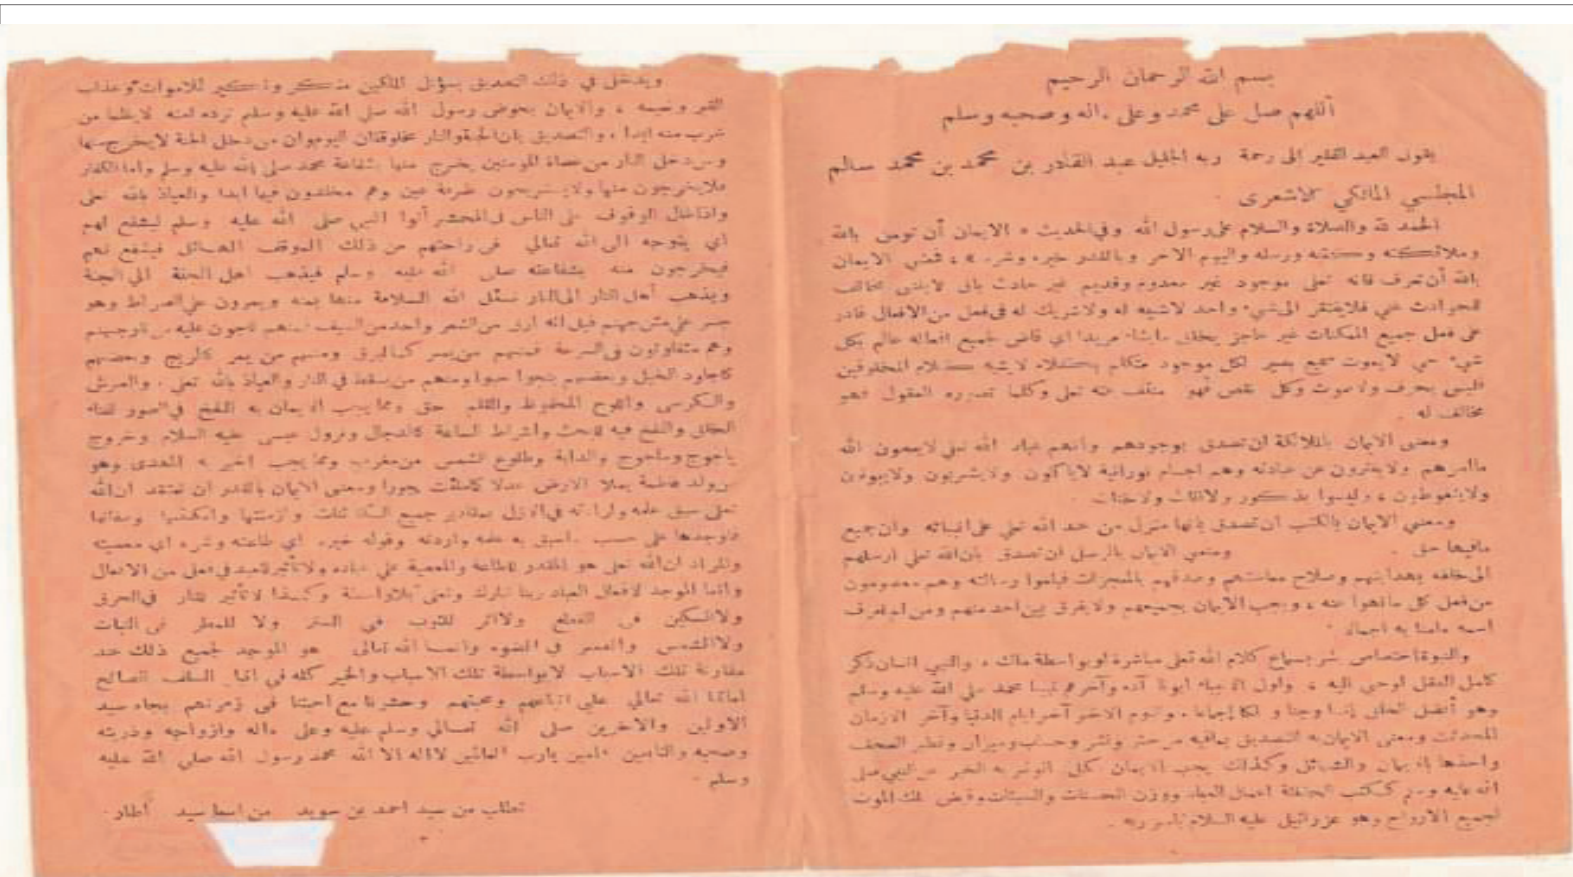 بسم الله الرحمان الرحيم
أللهم صل على محمد وعلى ءاله وصحبه وسلم
يقول العبد الفقير الى رحمة ربه الجليل عبد القادر بن محمد بن محمد سالم
المجلسي المالكي كلاشعرى .
الحمد لله والصلاة والسلام على رسول الله وفي الحديث ء الايمان أن تومن بالله
وملائكته وكتبه ورسله واليوم الاخر وبالقدر خيره وشره ء ، فمعنى الايمان
بالله أن تعرف فانه تعلى موجود غير معدوم وقديم غير حادث باق لايفنى مخالف
للحوادث غني فلايفتقر الى شيء واحد لاشبيه له ولاشريك له فى فعل من الافعال قادر
على فعل جميع الممكنات غير عاجز يخلق مايشاء مريدا اي قاض لجميع افعاله عالم بكل
شيء حي لايموت سميع بصير لكل موجود متكلم بكلام لايشبه كلام المخلوقين
فليس بحرف ولاصوت وكل نقص فهو منتف عنه تعلى وكلما تصوره العقول فهو
مخالف له .
ومعنى الايمان بالملائكة ان تصدق بوجودهم وأنهم عباد الله تعلى لايعصون الله
ماامرهم ولايفترون عن عبادته وهم اجسام نورانية لاياكلون ولايشربون ولايبولون
ولايتغوطون ، وليسوا بذكور ولااناث ولاخناث .
ومعنى الايمان بالكتب ان تصدق بأنها منزلة من عند الله تعلى على انبيائه وان جميع
مافيها حق . ومعنى الايمان بالرسل ان تصدق بأن الله تعلى ارسلهم
الى خلقه بهدايتهم وصلاح معاشهم وصدقهم بالمعجزات فبلغوا رسالته وهم معصومون
من فعل كل مانهوا عنه ، ويجب الايمان بجميعهم ولايفرق بين احد منهم ومن لم يعرف
اسمه ءامنا به اجمالا .
والنبوة اختصاص بشر بسماع كلام الله تعلى مباشرة او بواسطة ملك ، والنبي انسان ذكر
كامل العقل اوحي اليه ، واول الانبياء ابونا آدم وآخرهم نبينا محمد صلى الله عليه وسلم
وهو أفضل الخلق إنسا وجنا و لكا إجماعا . واليوم الاخر آخر ايام الدنيا وآخر الازمان
المحدثت ومعنى الايمان به التصديق بمافيه من حشر ونشر وحساب وميزان وتطير الصحف
واخذها بالايمان والشمائل وكذلك يجب الايمان بكل اتوتر به الخبر عن النبي صلى
الله عليه وسلم ككتب الحفظة اعمال العباد ووزن الحسنات والسيئات وقبض ملك الموت
لجميع الارواح وهو عزرائيل عليه السلام بأمر ربه .
ويدخل في ذلك التصديق بسؤال الملكين منكر ونكير للاموات وعذاب
القبر ونعيمه ، والايمان بحوض رسول الله صلى الله عليه وسلم ترده امته لايظما من
شرب منه ابدا ، والتصديق بان الجنة والنار مخلوقتان اليوم وان من دخل الجنة لايخرج منها
ومن دخل النار من عصاة المومنين يخرج منها بشفاعة محمد صلى الله عليه وسلم وأما الكفار
فلايخرجون منها ولايستريحون طرفة عين وهم مخلدون فيها ابدا والعياذ بالله تعلى
واذاطال الوقوف على الناس فى المحشر أتوا النبي صلى الله عليه وسلم ليشفع لهم
أي يتوجه الى الله تعالى فى راحتهم من ذلك الموقف الهائل فيشفع لهم
فيخرجون منه بشفاعته صلى الله عليه وسلم فيذهب اهل الجنة الى الجنة
ويذهب أهل النار الى النار نسئل الله السلامة منها بمنه ويمرون على الصراط وهو
جسر على متن جهنم قيل انه ارق من الشعر واحد من السيف فمنهم ناجون عليه من نارجهنم
وهم متفاوتون فى السرعة فمنهم من يمر كالبرق ومنهم من يمر كالريح وبعضهم
كاجاود الخيل وبعضهم ينجوا حبوا ومنهم من يسقط في النار والعياذ بالله تعلى . والعرش
والكرسى واللوح المحفوظ والقلم حق ومما يجب الايمان به النفخ في الصور لفناء
الخلق والنفخ فيه للبعث واشراط الساعة كالدجال ونزول عيسى عليه السلام وخروج
ياجوج وماجوج والدابة وطلوع الشمس من مغرب ومما يجب اخبر به المهدى وهو
من ولد فاطمة يملا الارض عدلا كماملئت جورا ومعنى الايمان بالقدر ان تعتقد ان الله
تعلى سبق علمه وارادته في الازل بمقادير جميع الكائنات وازمنتها وامكنتها وصفاتها
فأوجدها على حسب ماسبق به علمه وارادته وقوله خيره اي طاعته وشره اي معصيته
والمراد ان الله تعلى هو المقدر للطاعة والمعصية على عباده ولاتأثير للعبد في فعل من الافعال
وانما الموجد لافعال العباد ربنا تبارك وتعلى بلاواسطة وكذا لاتأثير للنار في الحرق
ولاالسكين فى القطع ولااثر للثوب فى الستر ولا للمطر فى النبات
ولاالشمس والقمر في الضوء وانما الله تعالى هو الموجد لجميع ذلك عند
مقارنة تلك الاسباب لابواسطة تلك الاسباب والخير كله في اتباع السلف الصالح
اماتنا الله تعالى على اتباعهم ومحبتهم وحشرنا مع احبتنا فى زمرتهم بجاه سيد
الاولين والاخرين صلى الله تعالى وسلم عليه وعلى ءاله وازواجه وذريته
وصحبه والتابعين ءامين يارب العالمين لااله الا الله محمد رسول الله صلى الله عليه
وسلم .
تطلب من سيد احمد بن سويد من اسما سيد أطار .